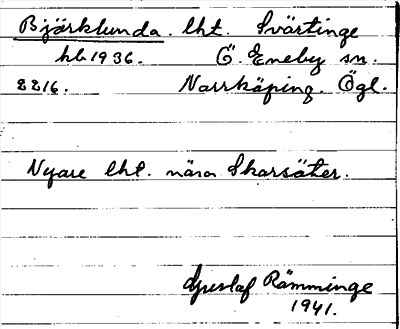 Björklunda. lht. Svärtinge
hb 1936. Ö. Eneby sn.
2216. Norrköping. Ögl.
Nyare lht. nära Skarsäter.
Gustaf Rämminge
1941.